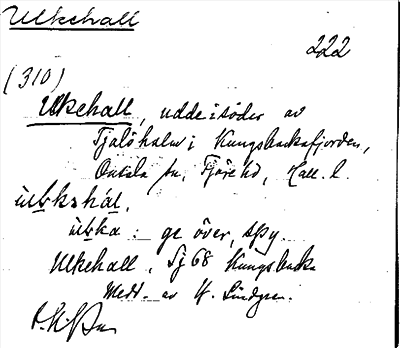 Ulkehall
222
(310)
Ulkehall, udde i söder av
Tjolöholm i Kungsbackafjorden,
Onsala sn, Fjäre hd, Hall. l.
ùlkəhál.
ùlka: ge över, spy.
Ulkehall, Sj 68 Kungsbacka
Medd. av H. Lindgren.